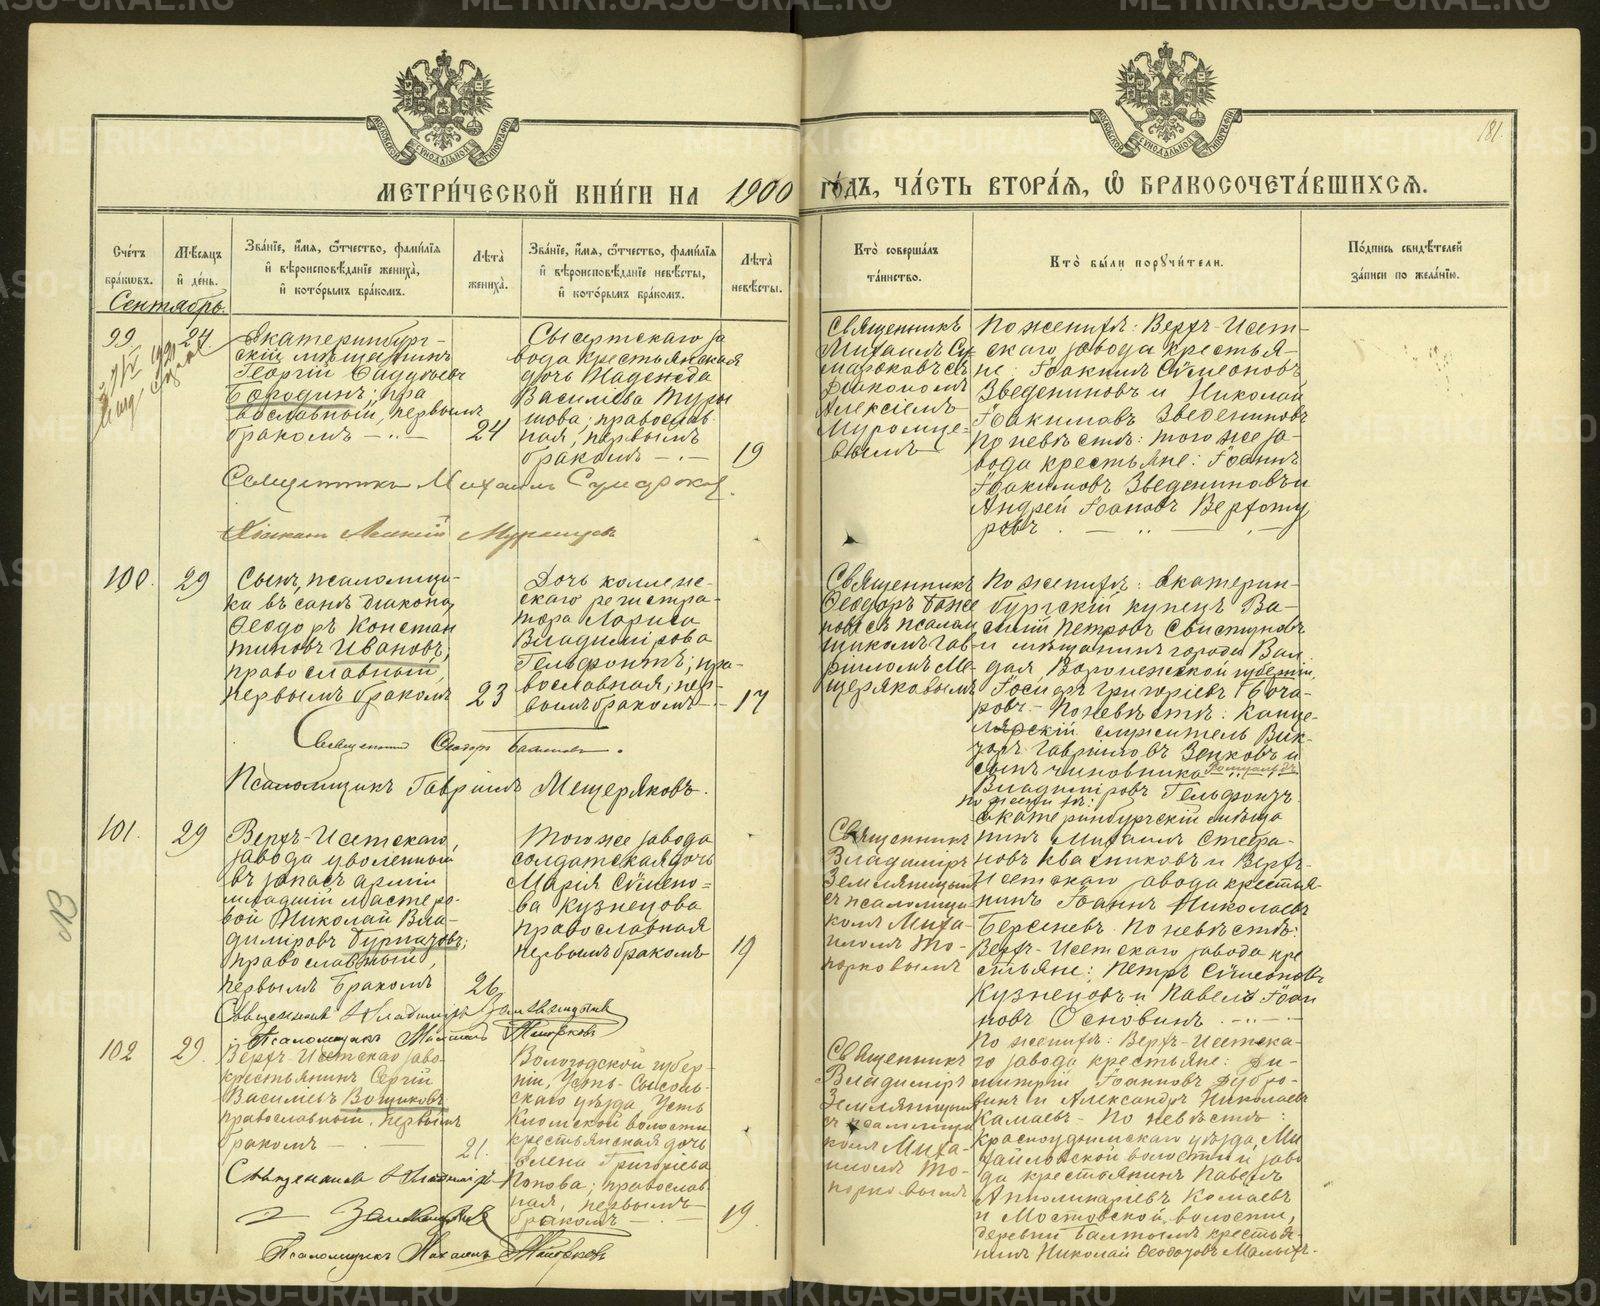 МЕТРИ́ЧЕСКОЙ КНИ́ГИ НА 1900 ГО́ДЪ, ЧА́СТЬ ВТОРА́Я, Ѿ БРАКОСОЧЕТА́ВШИХСЯ.
181.
Сче́тъ бра́кѡвъ.
Мѣ́сяцъ и҆ де́нь.
Зва́нїе, и҆́мя, ѻ҆́тчество, фами́лїя
и҆ вѣроисповѣ́данїе жениха̀,
и҆ кото́рымъ бра́комъ.
Лѣ́та̀ жениха̀.
Зва́нїе, и҆́мя, ѻ҆́тчество, фами́лїя
и҆ вѣроисповѣ́данїе невѣ́сты,
и҆ кото́рымъ бра́комъ.
Лѣ́та̀ невѣ́сты.
Кто̀ соверша́лъ та́инство.
Кто̀ бы́ли порꙋчи́тели.
По́дпись свидѣ́телей
за́писи по жела́нїю.
Сентябрь
99
24
Екатеринбург-
скій мѣщанинъ
Георгій
Бородинъ, пра
вославный, первымъ
бракомъ
24
Сысертскаго за
вода крестьянская
дочь Надежда
Василіева
православ
ная, первымъ
бракомъ
19
Священникъ
Михаилъ Су
мароковъ съ
діакономъ
Алексіемъ
Муромце-
вымъ
По женихѣ: Верхъ-Исет-
скаго завода крестья-
не: Іоакимъ Сѵмеоновъ
Зведениновъ и Николай
Іоакимовъ Зведениновъ
По невѣстѣ: того же за-
вода крестьяне: Іоаннъ
Іоакимовъ Зведениновъ и
Андрей Іоановъ Верхоту
ровъ
Священникъ Михаилъ Сумароковъ.
Діаконъ Алексій Муромцевъ
100.
29
Сынъ псаломщи-
ка въ санѣ діакона,
Ѳеодоръ Констан
тиновъ Ивановъ,
православный,
первымъ бракомъ
23
Дочь коллеж-
скаго регистра-
тора Лариса
Владимірова
Гельфонтъ; пра-
вославная, пер-
вымъ бракомъ
17
Священникъ
Ѳеодоръ Баже
новъ съ псалом
щикомъ Гав-
рііломъ Ме-
щеряковымъ
По женихѣ: екатерин-
бургскій купецъ Ва-
силій Петровъ Свистуновъ
и мѣщанинъ города Вал
Воронежской губерніи,
Григоріевъ Боча-
ровъ. - По невѣстѣ: Канце-
лярскій служитель Вик-
торъ Гавріиловъ Зенковъ и
сынъ чиновника
Владиміровъ Гельфонтъ
Священникъ Ѳеодоръ Баженовъ.
Псаломщикъ Гавріилъ Мещеряковъ.
101.
29
Верхъ-Исетскаго
завода уволенный
въ запасъ арміи
младшій мастеро-
вой Николай Вла-
диміровъ
православный,
первымъ бракомъ
26
Того же завода
солдатская дочь
Марія Сѵмеоно-
ва Кузнецова
православная
первымъ бракомъ
19
Священникъ
Владиміръ
Земляницынъ
съ псаломщи-
комъ Миха-
иломъ То-
порковымъ
По женихѣ:
екатеринбургскій мѣща
нинъ Михаилъ Стефа-
новъ Квасниковъ и Верхъ-
Исетскаго завода крестья-
нинъ Іоаннъ Николаевъ
Берсеневъ. По невѣстѣ:
Верхъ-Исетскаго завода кре
стьяне: Петръ Сѵмеоновъ
Кузнецовъ и Павелъ Іоан
новъ Основинъ
Священникъ Владиміръ Земляницынъ
Псаломщикъ Михаилъ Топорковъ
102
29.
Верхъ-Исетскаго заво-
крестьянинъ Сергій
Василіевъ Вощиковъ
православный, первымъ
бракомъ
21.
Вологодской губер-
ніи, Усть-Сысоль-
скаго уѣзда, Усть
волости
крестьянская дочь
Елена Григоріева
Попова; православ
ная, первымъ
бракомъ
19.
Священникъ
Владиміръ
Земляницынъ
съ псаломщи
комъ Миха-
иломъ То-
порковымъ
По женихѣ: Верхъ-Исетска-
го завода крестьяне: Ди-
митрій Іоанновъ Дубро-
винъ и Александръ Николаевъ
Камаевъ - По невѣстѣ:
Красноуфимскаго уѣзда, Ми
хайловской волости и заво
да крестьянинъ Павелъ
Апполинаріевъ Комаевъ
и Мостовской волости,
деревни Балтымъ крестья-
нинъ Николай Ѳеодоровъ
Священникъ Владиміръ
Земляницынъ
Псаломщикъ Михаилъ Топорковъ
METRIKI.GASO-URAL.RU